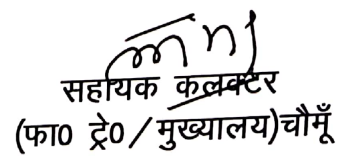 सहायक कलक्टर
(फा0 ट्रे0/मुख्यालय)चौमूँ